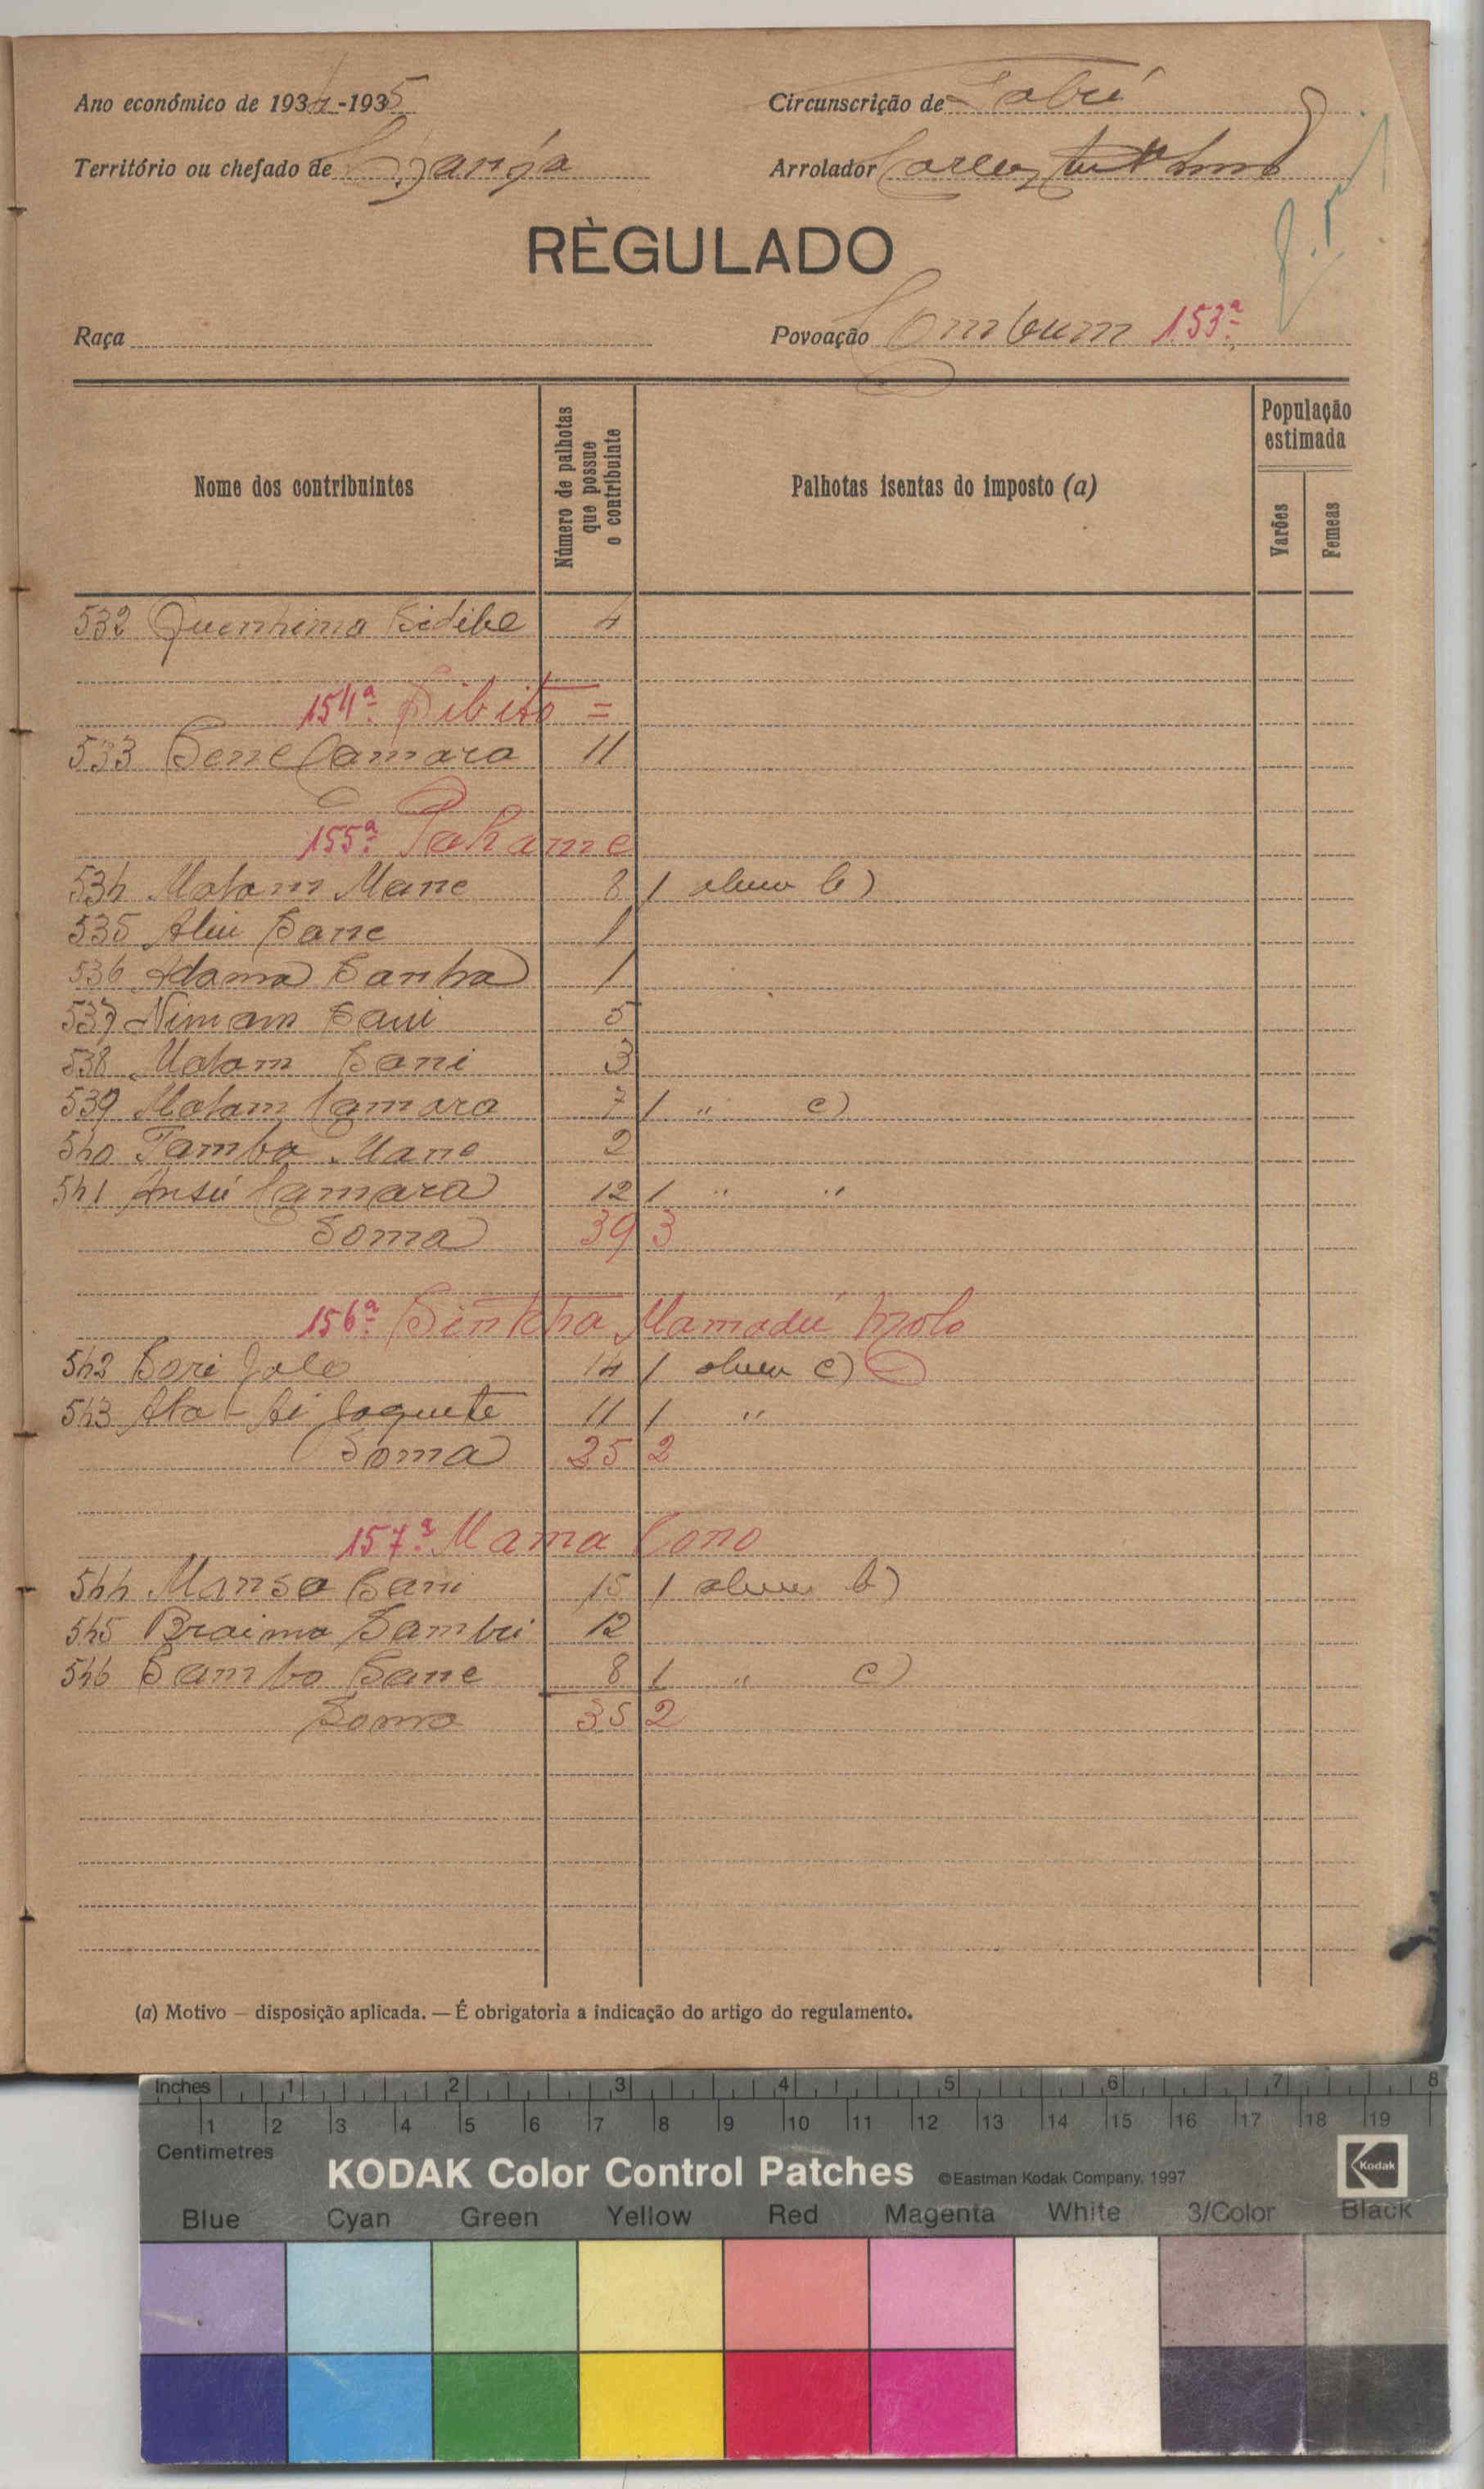 Ano económico de 1934-1935
Circunscrição de Gabú
Território ou chefado de
Arrolador Carlos
REGULADO
Raça
Povoação 153ª
Nome dos contribuintes
Número de palhotas que possue o contribuinte
Palhotas isentas do imposto (a)
População estimada
Varões
Femeas
532 Quenhima Sidibe 4
154ª Sibito =
533 Sene Camara 11
155ª Pahame
534 Malam Mane 8 1 b)
535 Aliu Sane 1
536 Adama Sanha 1
537 Nimam Sani 5
538 Malam Sani 3
539 Malam Camara 7 1 " c)
540 Tamba Mane 2
541 Ansú Camara 12 1 " "
Soma 39 3
156ª Sintcha Mamadú
542 Sori Jalo 14 1 c)
543 11 1 "
Soma 25 2
157ª Mama Cono
544 Mansa Sani 15 1 b)
545 Braima Sambú 12
546 Sambo Sane 8 1 " c)
Soma 35 2
(a) Motivo — disposição aplicada. — É obrigatoria a indicação do artigo do regulamento.
Inches 1 2 3 4 5 6 7 8
1 2 3 4 5 6 7 8 9 10 11 12 13 14 15 16 17 18 19
Centimetres
KODAK Color Control Patches ©Eastman Kodak Company, 1997 Kodak
Blue Cyan Green Yellow Red Magenta White 3/Color Black